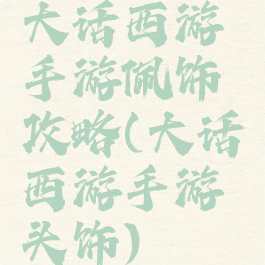 大话西游
手游佩饰
攻略(大话
西游手游
头饰)